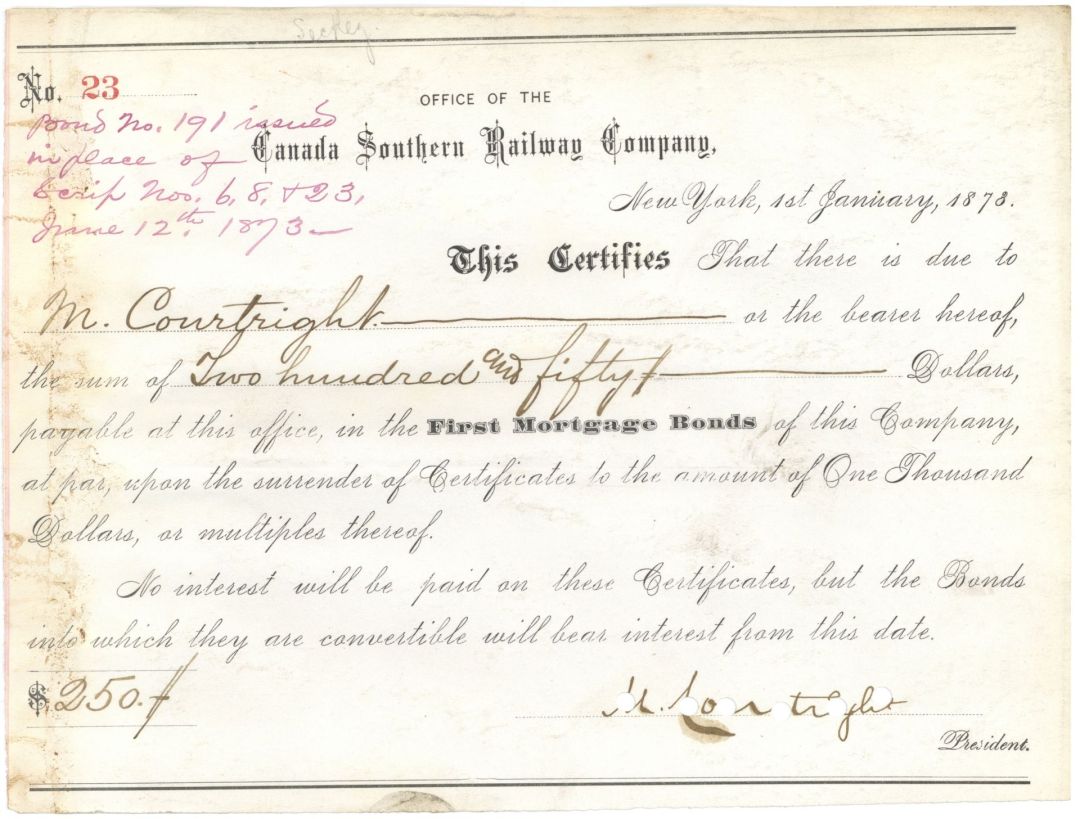 No. 23
Bond No. 191 issued
in place of
Scrip Nos. 6, 8, & 23,
June 12th. 1873
OFFICE OF THE
Canada Southern Railway Company,
New York, 1st January, 1873.
This Certifies That there is due to
M. Courtright. or the bearer hereof,
the sum of Two hundred and fifty Dollars,
payable at this office, in the First Mortgage Bonds of this Company,
at par, upon the surrender of Certificates to the amount of One Thousand
Dollars, or multiples thereof.
No interest will be paid on these Certificates, but the Bonds
into which they are convertible will bear interest from this date.
$ 250.
M. Courtright
President.